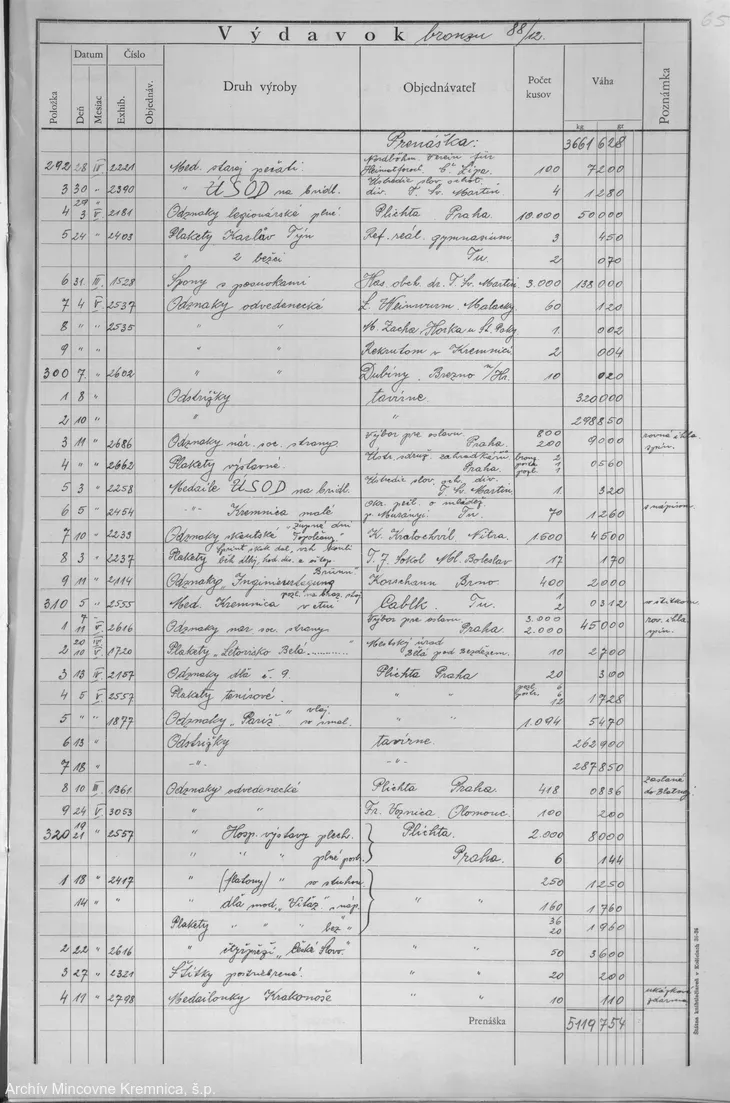 65
Výdavok bronzu 88/12.
Položka Datum Deň Mesiac Číslo Exhib. Objednáv. Druh výroby Objednávateľ Počet kusov Váha kg gr Poznámka
Prenáška: 3661 628
292 28 IV 2221 Med. starej pečati Nordböhm. Verein für Heimatforsch. Č. Lípa. 100 7200
3 30 " 2390 " ÚSOD na bridl. Ústredie slov. ochot. div. T. Sv. Martin 4 1280
4 3 V 2181 Odznaky legionárské plné. Plichta Praha. 10.000 50000
5 24 " 2403 Plakety Karlův Týn Ref. reál. gymnasium 3 450
" 2 bežci Tu. 2 070
6 31. III. 1528 Spony s Has. obch. dr. T. Sv. Martin 3.000 138000
7 4 V 2537 Odznaky odvedenecké L. Weinwurm. Malacky 60 120
8 " " 2535 " " M. Zacha Horka u St. Paky 1 002
9 " " " " Rekrutom v Kremnici 2 004
300 7. " 2602 " " Dubiny. Brezno n/Hr. 10 020
1 8 " Odstrižky tavírne. 320000
2 10 " " " 298850
3 11 " 2686 Odznaky nár. soc. strany Výbor pre oslavu Praha. 800 200 9000 rovná ihla
4 " " 2662 Plakety výstavné. Ústr. sdruž. zahradkářů Praha. 2 1 1 0560
5 3 " 2258 Medaile ÚSOD na bridl. Ústredie slov. och. div. T. Sv. Martin 1 320
6 5 " 2454 -"- Kremnica malé Okr. peč. o mládež p. Murányi Tu 70 1260 s nápisom
7 10 " 2233 Odznaky skautské "Župné dni Topolčany" K. Kratochvíl Nitra. 1500 4500
8 3 " 2237 Plakety T. J. Sokol Ml. Boleslav 17 170
9 11 " 2114 Odznaky "Ingineurtagung Brünn" Korschann Brno 400 2000
310 5 " 2555 Med. Kremnica v etui Cablk. Tu. 1 2 0312
1 11 2616 Odznaky nár. soc. strany Výbor pre oslavu Praha 3.000 2.000 45000 rov. ihla
2 10 1720 Plakety "Letovisko Belá" Mestský úrad Bělá pod Bezdězem. 10 2700
3 13 IV 2157 Odznaky dľa č. 9. Plichta Praha 20 300
4 5 V 2557 Plakety tenisové. " " 6 6 12 1728
5 " " 1877 Odznaky "Paříž" " " 1.094 5470
6 13 " Odstrižky tavírne. 262900
7 18 " -"- -"- 287850
8 10 III 1361 Odznaky odvedenecké Plichta Praha. 418 0836 zaslané do Blatnej
9 24 V 3053 " " Fr. Voznica Olomouc. 100 200
320 19 21 " 2557 " Hosp. výstavy plech. Plichta. 2.000 8000
" " " plné Praha. 6 144
1 18 " 2417 " " 250 1250
14 " " " dľa mod. "Vítáz" náp. " " 160 1760
Plakety " " " bez " 36 20 1960
2 22 " 2616 " "České Slovo." " " 50 3600
3 27 " 2321 Štítky postriebrené. " " 20 200
4 11 " 2798 Medailonky Krakonoše " " 10 110 ukážkové zdarma
Prenáška 5119754
Archív Mincovne Kremnica, š.p.